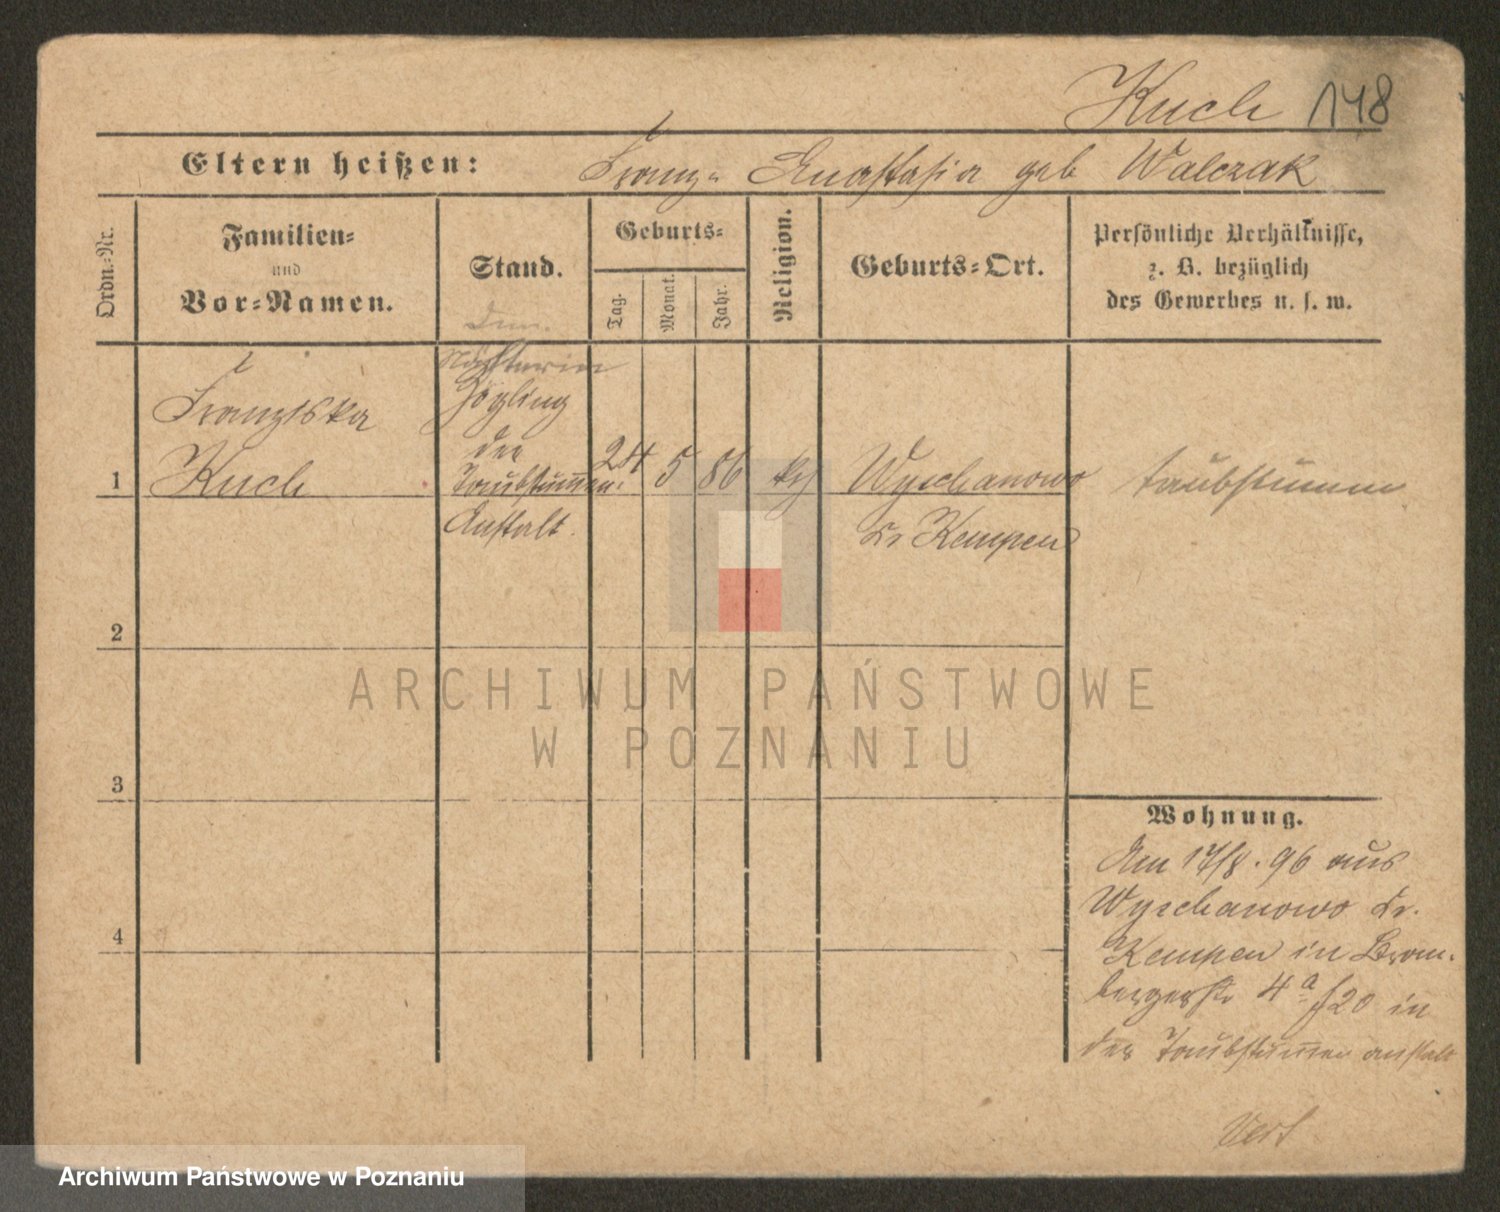 Kuch 148
Eltern heißen: Franz u. Anastasia geb Walczak
Ordn.-Nr.
Familien-
und
Vor-Namen.
Stand.
Geburts-
Tag.
Monat.
Jahr.
Religion.
Geburts-Ort.
Persönliche Verhältnisse,
z. B. bezüglich
des Gewerbes u. s. w.
Franziska
Kuch
Zögling
der
Taubstummen
Anstalt.
1
24 5 86 kth
Wyschanowo
Kr Kempen
taubstumm
2
3
4
Wohnung.
Am 17/8. 96 aus
Wyschanowo Kr.
Kempen in Brom-
bergerstr 4a f 20 in
der Taubstummen anstalt
ARCHIWUM PAŃSTWOWE
W POZNANIU
Archiwum Państwowe w Poznaniu